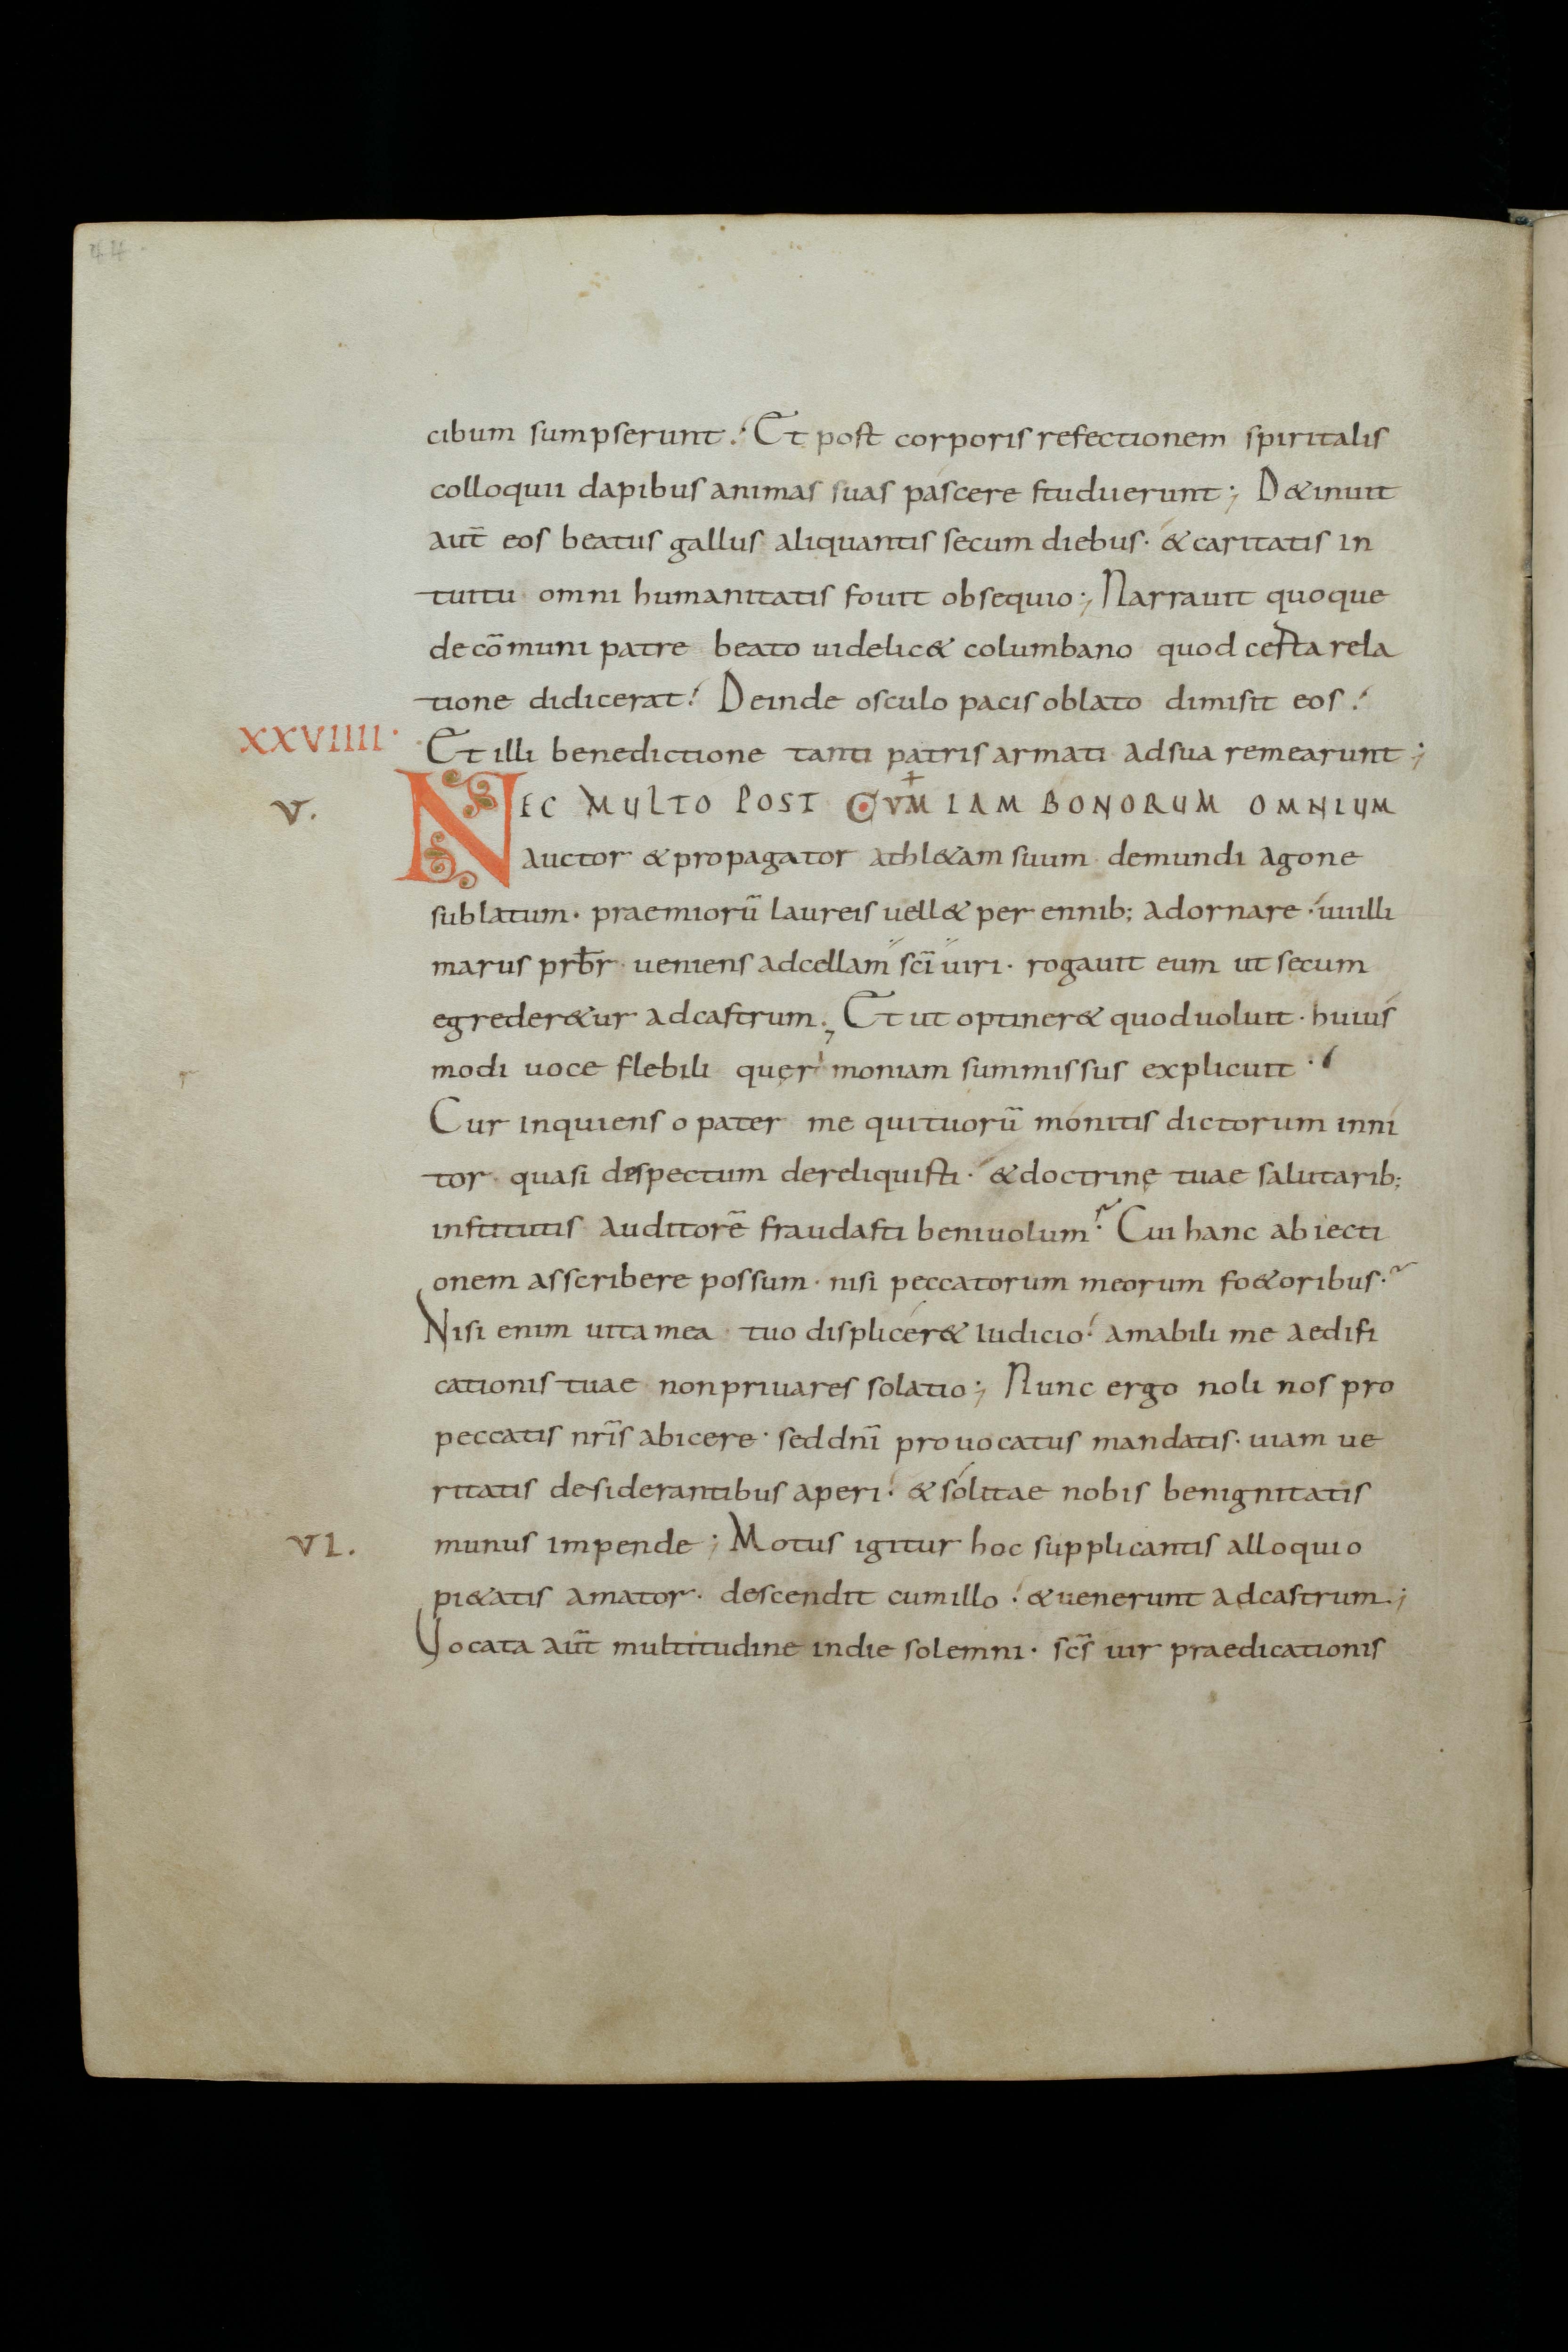 44
cibum sumpserunt. Et post corporis refectionem spiritalis
colloquii dapibus animas suas pascere studuerunt; D&inuit
aut̄ eos beatus gallus aliquantis secum diebus· & caritatis in
tuitu omni humanitatis fouit obsequio; Narrauit quoque
de cōmuni patre beato uidelic& columbano quod certa rela
tione didicerat. Deinde osculo pacis oblato dimisit eos.
XXVIIII· Et illi benedictione tanti patris armati ad sua remearunt;
V. NEC MULTO POST CUM IAM BONORUM OMNIUM
auctor & propagator athl&am suum de mundi agone
sublatum· praemiorū laureis uell& perennib; adornare· uuilli
marus prb̄r ueniens ad cellam sc̄i uiri· rogauit eum ut secum
egreder&ur ad castrum; Et ut optiner& quod uoluit· huius
modi uoce flebili querimoniam summissus explicuit·
Cur inquiens o pater me qui tuorū monitis dictorum inni
tor· quasi despectum dereliquisti· & doctrinę tuae salutarib;
institutis auditorē fraudasti beniuolum? Cui hanc abiecti
onem asscribere possum· nisi peccatorum meorum fo&oribus?
Nisi enim uita mea tuo displicer& iudicio. amabili me aedifi
cationis tuae non priuares solatio; Nunc ergo noli nos pro
peccatis nr̄is abicere· sed dn̄i prouocatus mandatis· uiam ue
ritatis desiderantibus aperi. & solitae nobis benignitatis
VI. munus impende; Motus igitur hoc supplicantis alloquio
pi&atis amator· descendit cum illo. & uenerunt ad castrum;
Vocata aut̄ multitudine in die solemni· sc̄s uir praedicationis